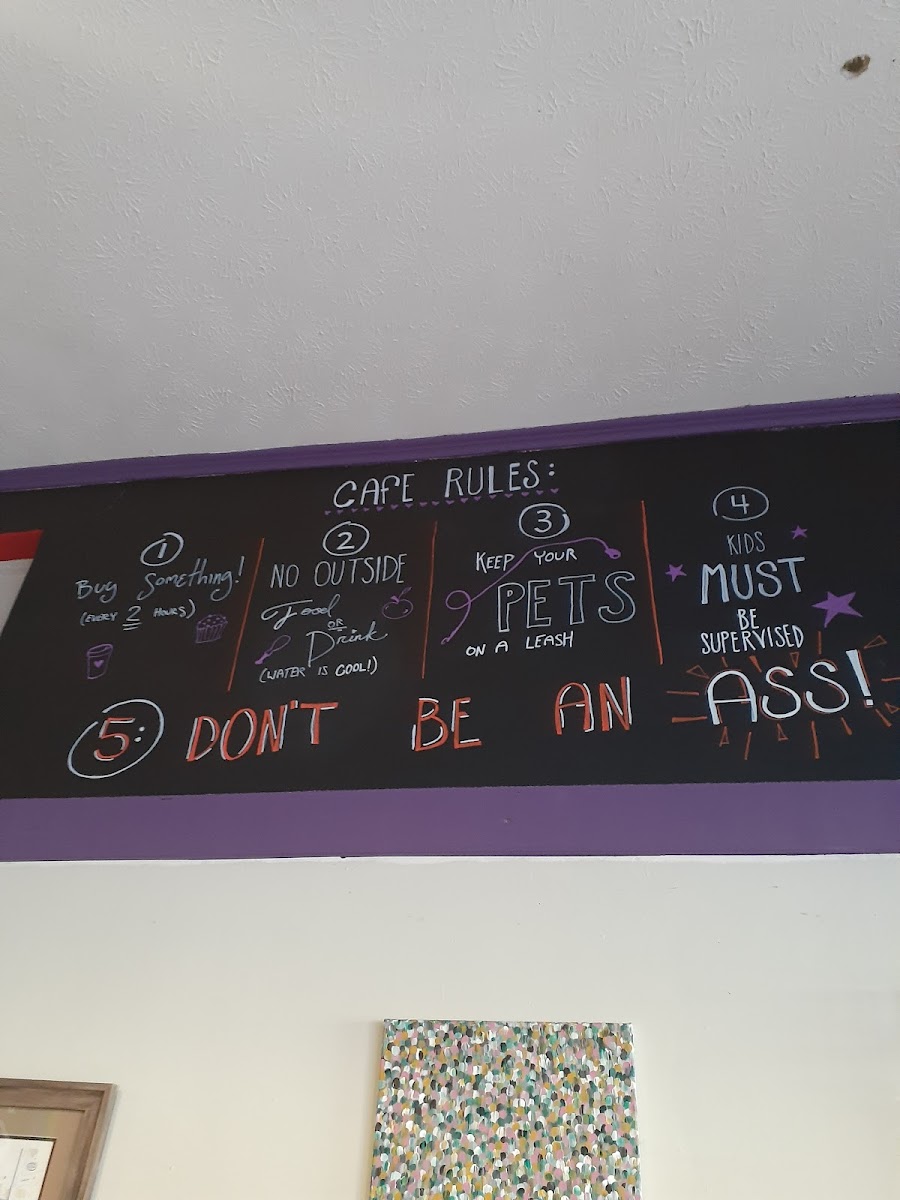 CAFE RULES:
1
Buy Something!
(EVERY 2 HOURS)
2
NO OUTSIDE
Food
OR
Drink
(WATER IS COOL!)
3
KEEP YOUR
PETS
ON A LEASH
4
KIDS
MUST
BE
SUPERVISED
5: DON'T BE AN ASS!